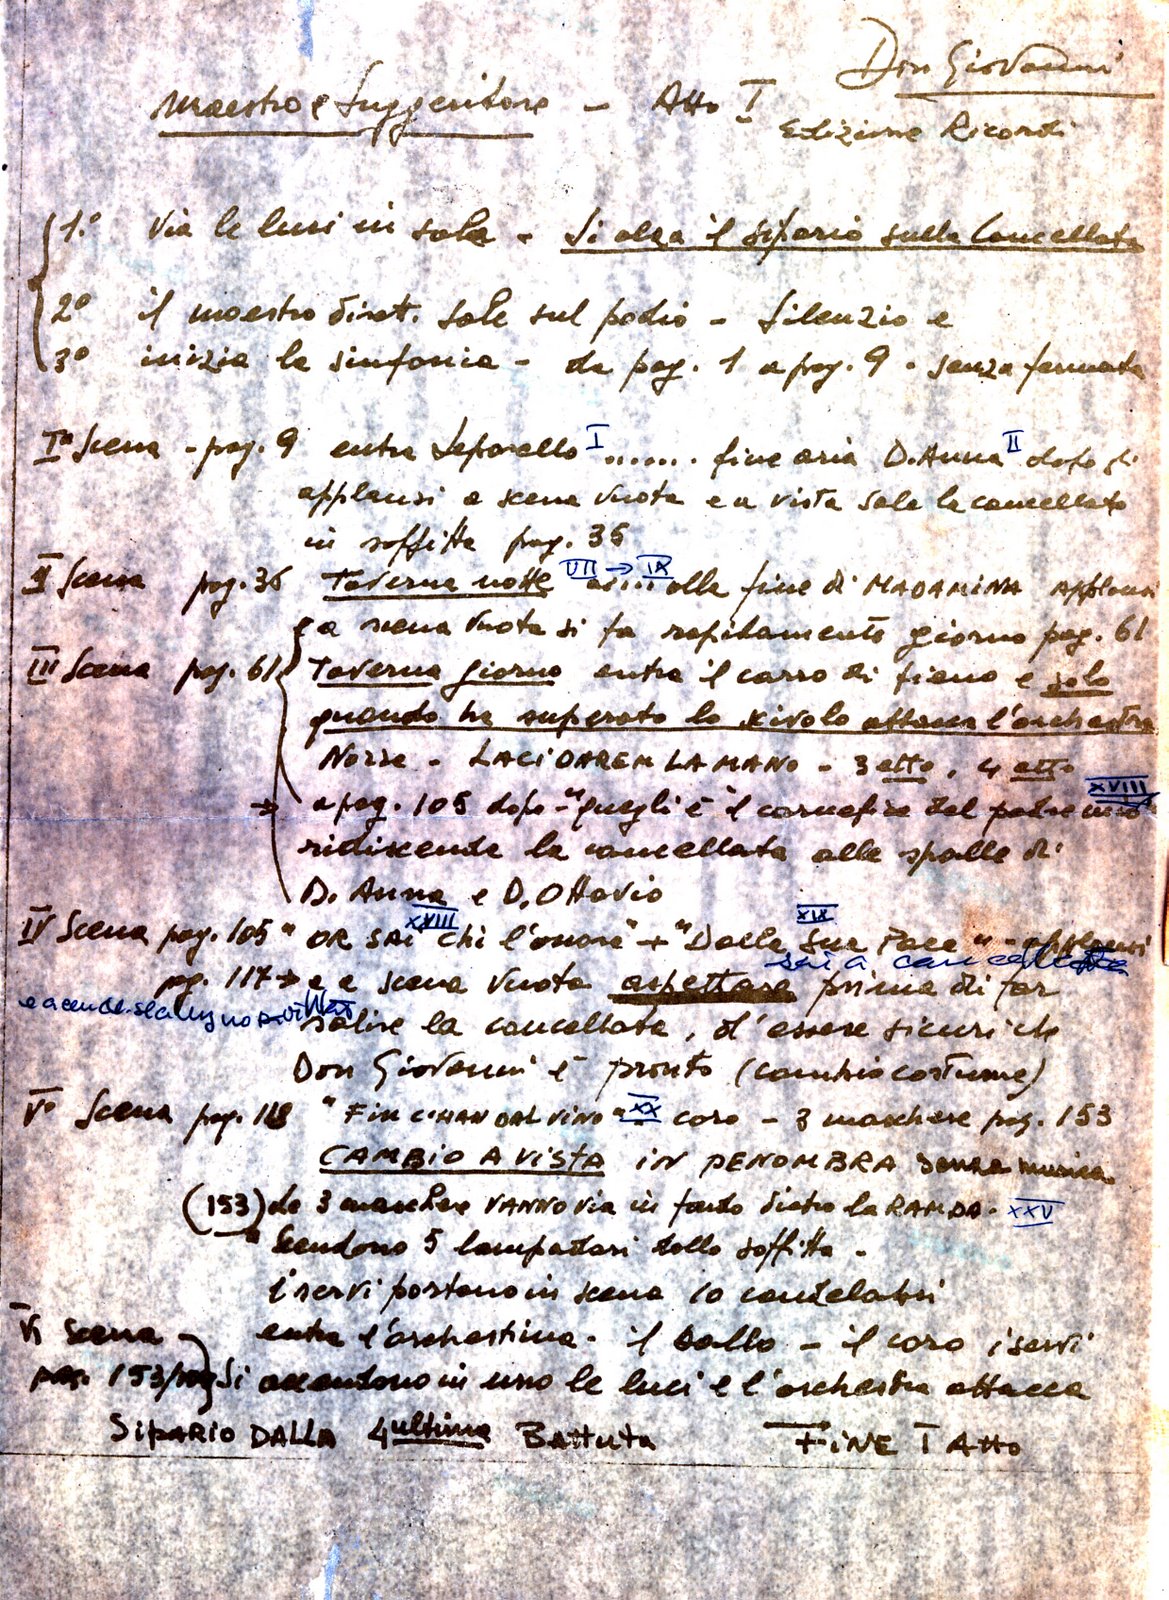 Don Giovanni
Maestro e Suggeritore - Atto I
Edizione Ricordi
1.° Via le luci in sala - Si alza il sipario sulla Cancellata
2° il maestro dirett. sale sul podio - Silenzio e
3° inizia la sinfonia - da pag. 1 a pag. 9 - senza fermata
Iª Scena - pag. 9 entra Leporello I ...... fine aria D. Anna II dopo gli
applausi a scena vuota e a vista sale la cancellata
in soffitta pag. 35
II Scena pag. 35 Taverna notte VII → IX alla fine di MADAMINA applausi
a scena vuota si fa rapidamente giorno pag. 61
III Scena pag. 61 Taverna giorno entra il carro di fieno e solo
quando ha superato lo scivolo attacca l'orchestra
Nozze - LA CI DAREM LA MANO - 3 etto, 4 etto
→ a pag. 105 dopo - "quegli è il carnefice del padre mio XVIII
ridiscende la cancellata alle spalle di
D. Anna e D. Ottavio
IV Scena pag. 105 "OR SAI chi l'onore" + "Dalla Sua Pace" - applausi
XVIII XIX
pg. 117 → e a scena vuota aspettare prima di far
salire la cancellata, d'essere sicuri che
Don Giovanni è pronto (cambio costume)
V° Scena pag. 118 "FIN C'HAN DAL VINO" XX coro - 3 maschere pag. 153
CAMBIO A VISTA IN PENOMBRA senza musica
(153) le 3 maschere VANNO via in fondo dietro la RAMPA. XXV
Scendono 5 lampadari dalla soffitta -
i servi portano in scena 10 candelabri
VI Scena entra l'orchestrina - il ballo - il coro i servi
pag. 153/ Si accendono in uno le luci e l'orchestra attacca
SIPARIO DALLA 4ultima Battuta FINE I Atto